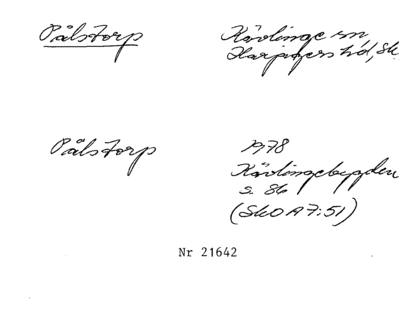 Pålstorp
Kävlinge sn
Harjagers hd, Sk.
Pålstorp
1978
Kävlingebygden
s. 86
(SkO A7:51)
Nr 21642